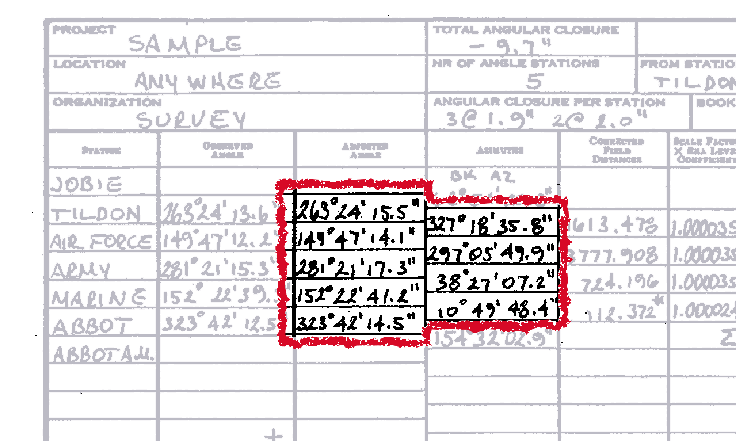 PROJECT
SAMPLE
TOTAL ANGULAR CLOSURE
- 9.7"
LOCATION
ANYWHERE
NR OF ANGLE STATIONS
5
FROM STATIO
TILDON
ORGANIZATION
SURVEY
ANGULAR CLOSURE PER STATION
3@ 1.9" 2@ 2.0"
BOOK
STATION
OBSERVED ANGLE
ADJUSTED ANGLE
AZIMUTH
CORRECTED FIELD DISTANCES
SCALE FACTO
X SEA LEVE
COEFFICIEN
JOBIE
BK AZ
TILDON 263°24'13.6" 263°24'15.5" 327°18'35.8" 613.478 1.000035
AIR FORCE 149°47'12.2" 149°47'14.1" 297°05'49.9" 777.908 1.000035
ARMY 281°21'15.3" 281°21'17.3" 38°27'07.2" 724.196 1.000035
MARINE 152° 22'39. 152°22'41.2" 10°49'48.4" 112.372* 1.000024
ABBOT 323°42'12.5 323°42'14.5" 154°32'02.9" Σ
ABBOT AZ.
+